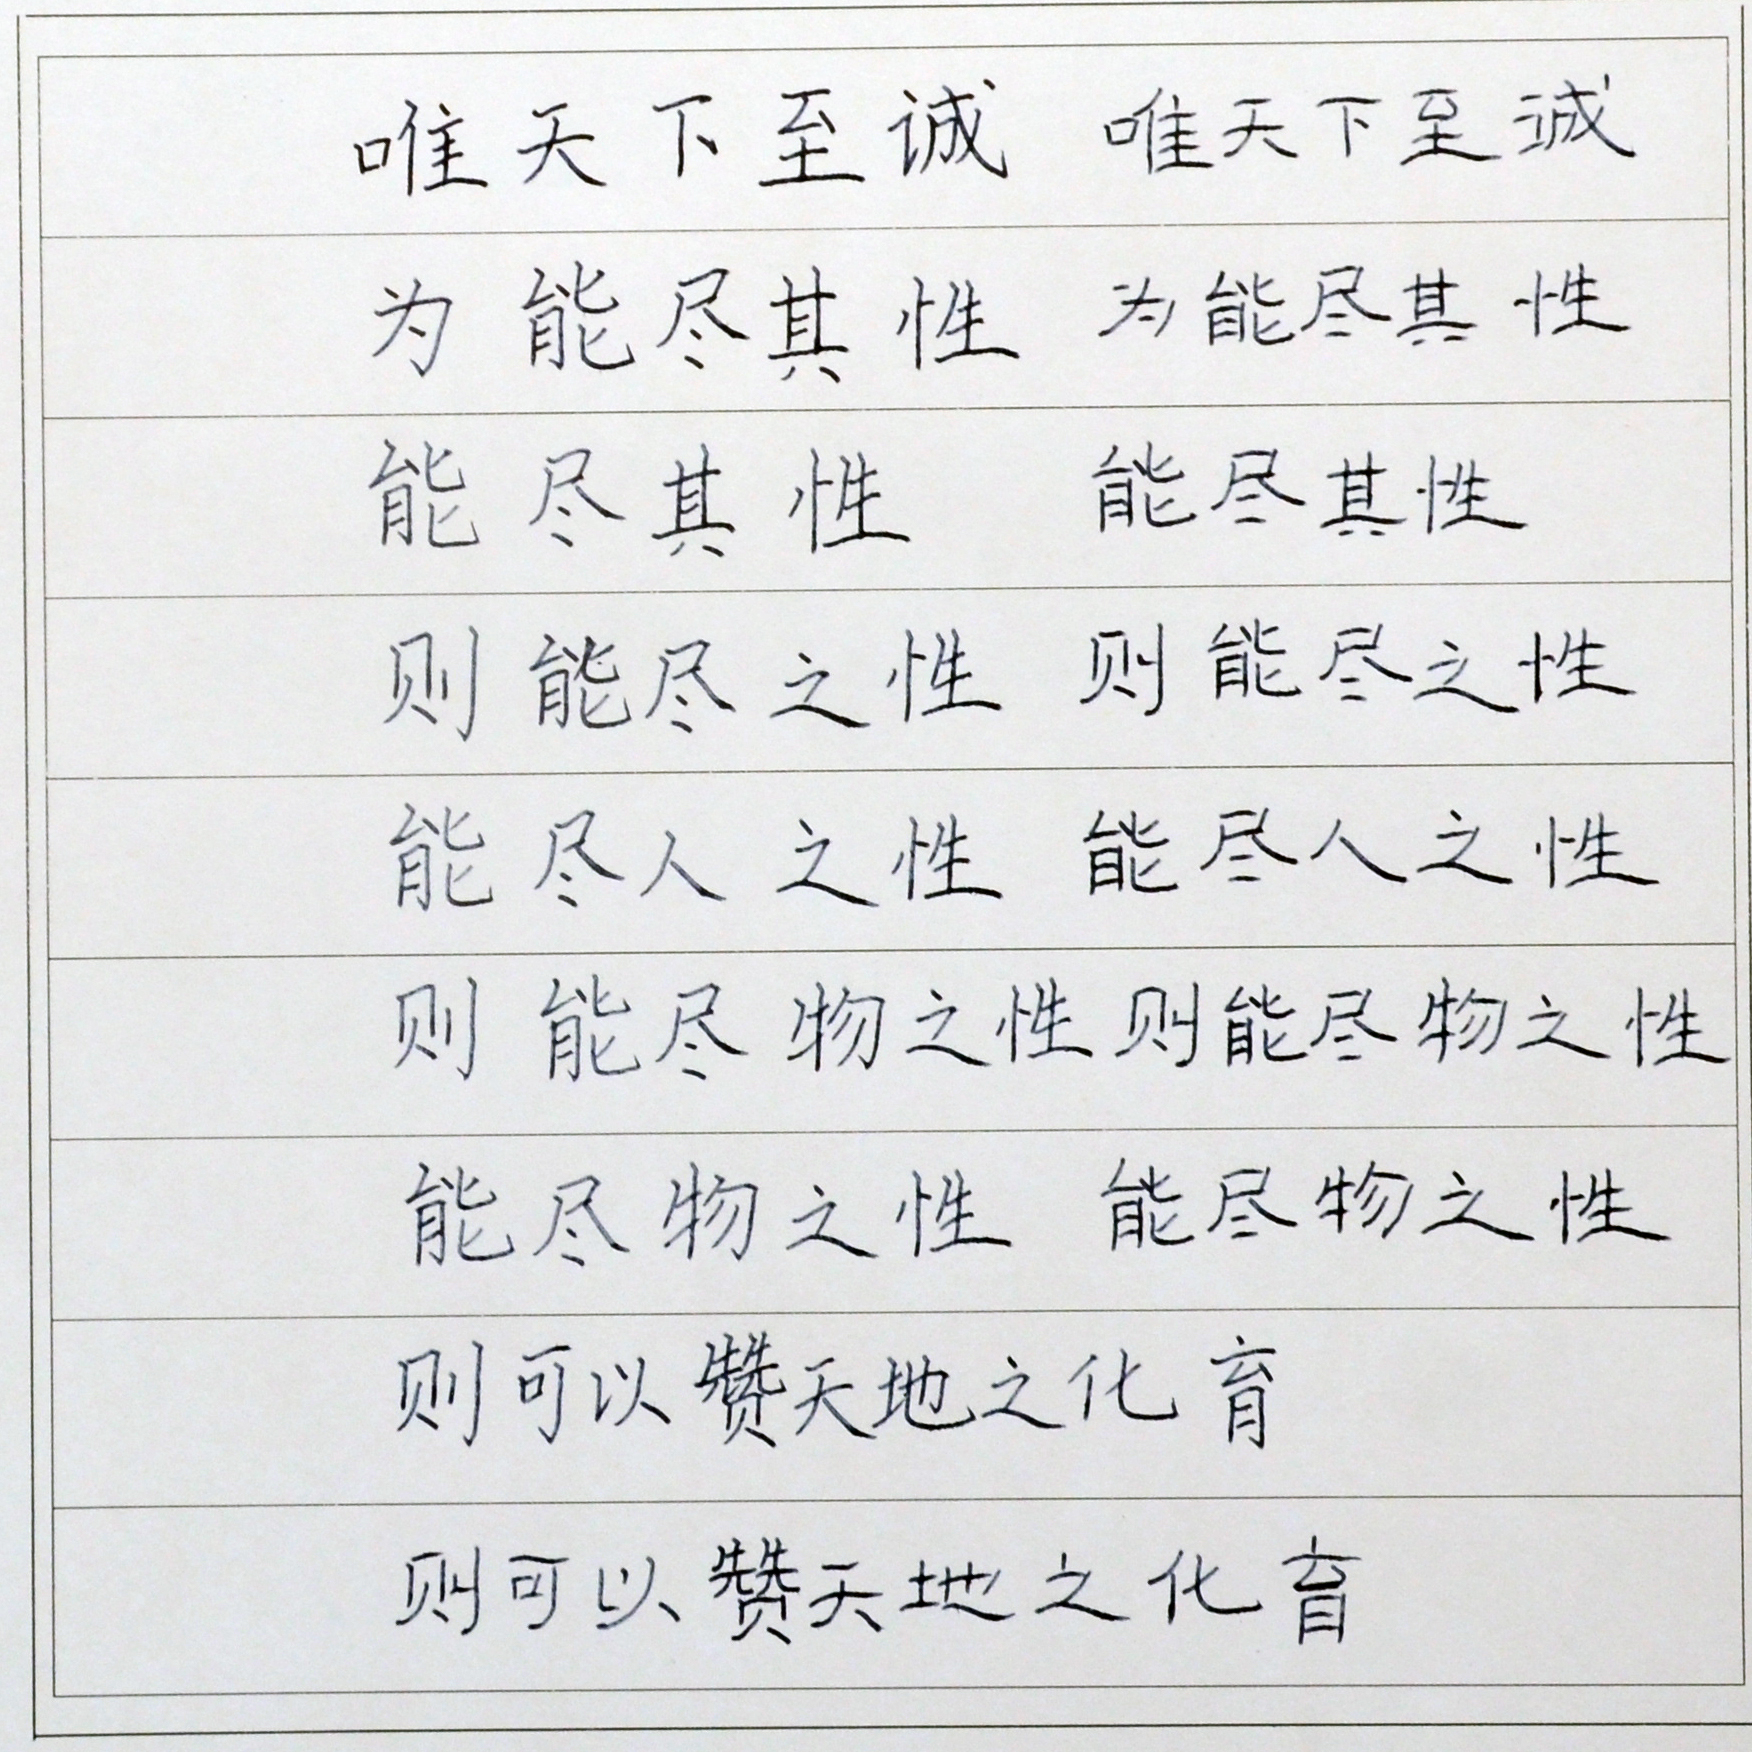 唯天下至诚 唯天下至诚
为能尽其性 为能尽其性
能尽其性 能尽其性
则能尽之性 则能尽之性
能尽人之性 能尽人之性
则能尽物之性 则能尽物之性
能尽物之性 能尽物之性
则可以赞天地之化育
则可以赞天地之化育